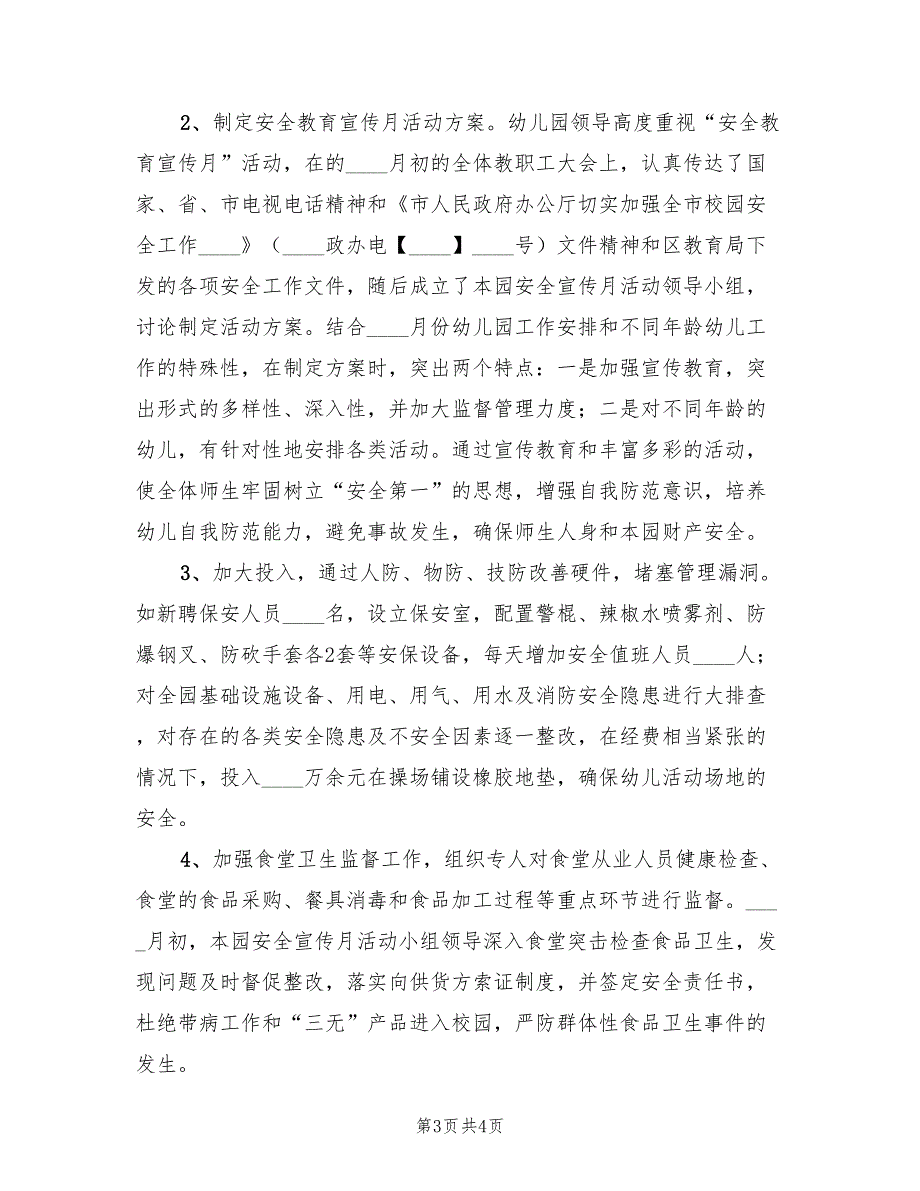 2、制定安全教育宣传月活动方案。幼儿园领导高度重视“安全教
育宣传月”活动，在的____月初的全体教职工大会上，认真传达了国
家、省、市电视电话精神和《市人民政府办公厅切实加强全市校园安
全工作____》（____政办电【____】____号）文件精神和区教育局下
发的各项安全工作文件，随后成立了本园安全宣传月活动领导小组，
讨论制定活动方案。结合____月份幼儿园工作安排和不同年龄幼儿工
作的特殊性，在制定方案时，突出两个特点：一是加强宣传教育，突
出形式的多样性、深入性，并加大监督管理力度；二是对不同年龄的
幼儿，有针对性地安排各类活动。通过宣传教育和丰富多彩的活动，
使全体师生牢固树立“安全第一”的思想，增强自我防范意识，培养
幼儿自我防范能力，避免事故发生，确保师生人身和本园财产安全。
3、加大投入，通过人防、物防、技防改善硬件，堵塞管理漏洞。
如新聘保安人员____名，设立保安室，配置警棍、辣椒水喷雾剂、防
爆钢叉、防砍手套各2套等安保设备，每天增加安全值班人员____人；
对全园基础设施设备、用电、用气、用水及消防安全隐患进行大排查
，对存在的各类安全隐患及不安全因素逐一整改，在经费相当紧张的
情况下，投入____万余元在操场铺设橡胶地垫，确保幼儿活动场地的
安全。
4、加强食堂卫生监督工作，组织专人对食堂从业人员健康检查、
食堂的食品采购、餐具消毒和食品加工过程等重点环节进行监督。___
_月初，本园安全宣传月活动小组领导深入食堂突击检查食品卫生，发
现问题及时督促整改，落实向供货方索证制度，并签定安全责任书，
杜绝带病工作和“三无”产品进入校园，严防群体性食品卫生事件的
发生。
第3页共4页